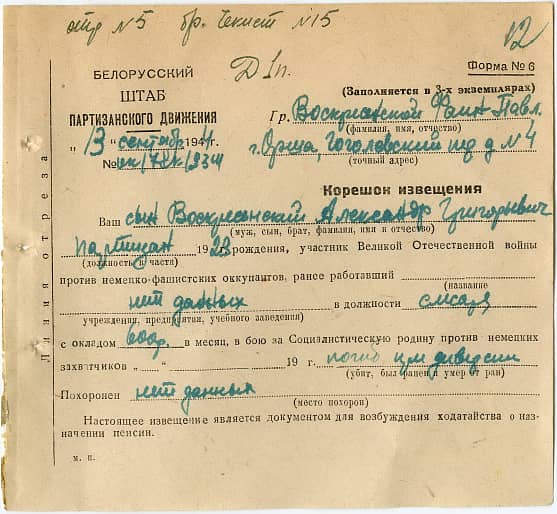 отр №5 бр. Чекист №15
12
Д 1п.
Форма № 6
БЕЛОРУССКИЙ
ШТАБ
ПАРТИЗАНСКОГО ДВИЖЕНИЯ
(Заполняется в 3-х экземплярах)
Гр. Воскресенской Фаин Павл.
(фамилия, имя, отчество)
„ 13 " сентябр 194 г.
г. Орша, Гоголевский д №4
(точный адрес)
№
Корешок извещения
Ваш сын Воскресенский Александр Григорьевич
(муж, сын, брат, фамилия, имя и отчество)
партизан 1928 рождения, участник Великой Отечественной войны
(должность и части)
против немецко-фашистских оккупантов, ранее работавший
(название
нет данных в должности слесаря
учреждения, предприятия, учебного заведения)
с окладом 600р. в месяц, в бою за Социалистическую родину против немецких
захватчиков „ " 19 г. погиб при диверсии
(убит, был ранен и умер от ран)
Похоронен нет данных
(место похорон)
Настоящее извещение является документом для возбуждения ходатайства о наз-
начении пенсии.
м. п.
Линия отреза